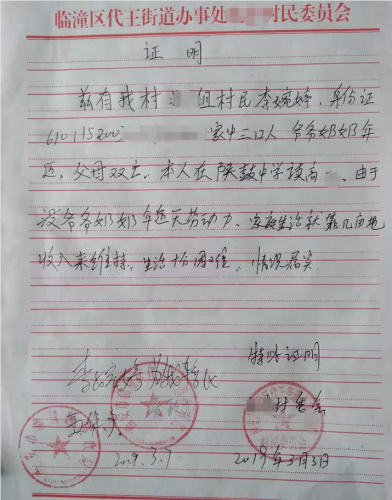 临潼区代王街道办事处 村民委员会
证明
兹有我村 组村民李婉婷,身份证
610115200 家中三口人 爷爷奶奶年
迈,父母双亡。本人在陕鼓中学读高 。由于
爷爷奶奶年迈无劳动力。家庭生活就靠几亩地
收入来维持,生活十分困难。情况属实
特此证明
村委会
2019.3.7
2019年3月3日